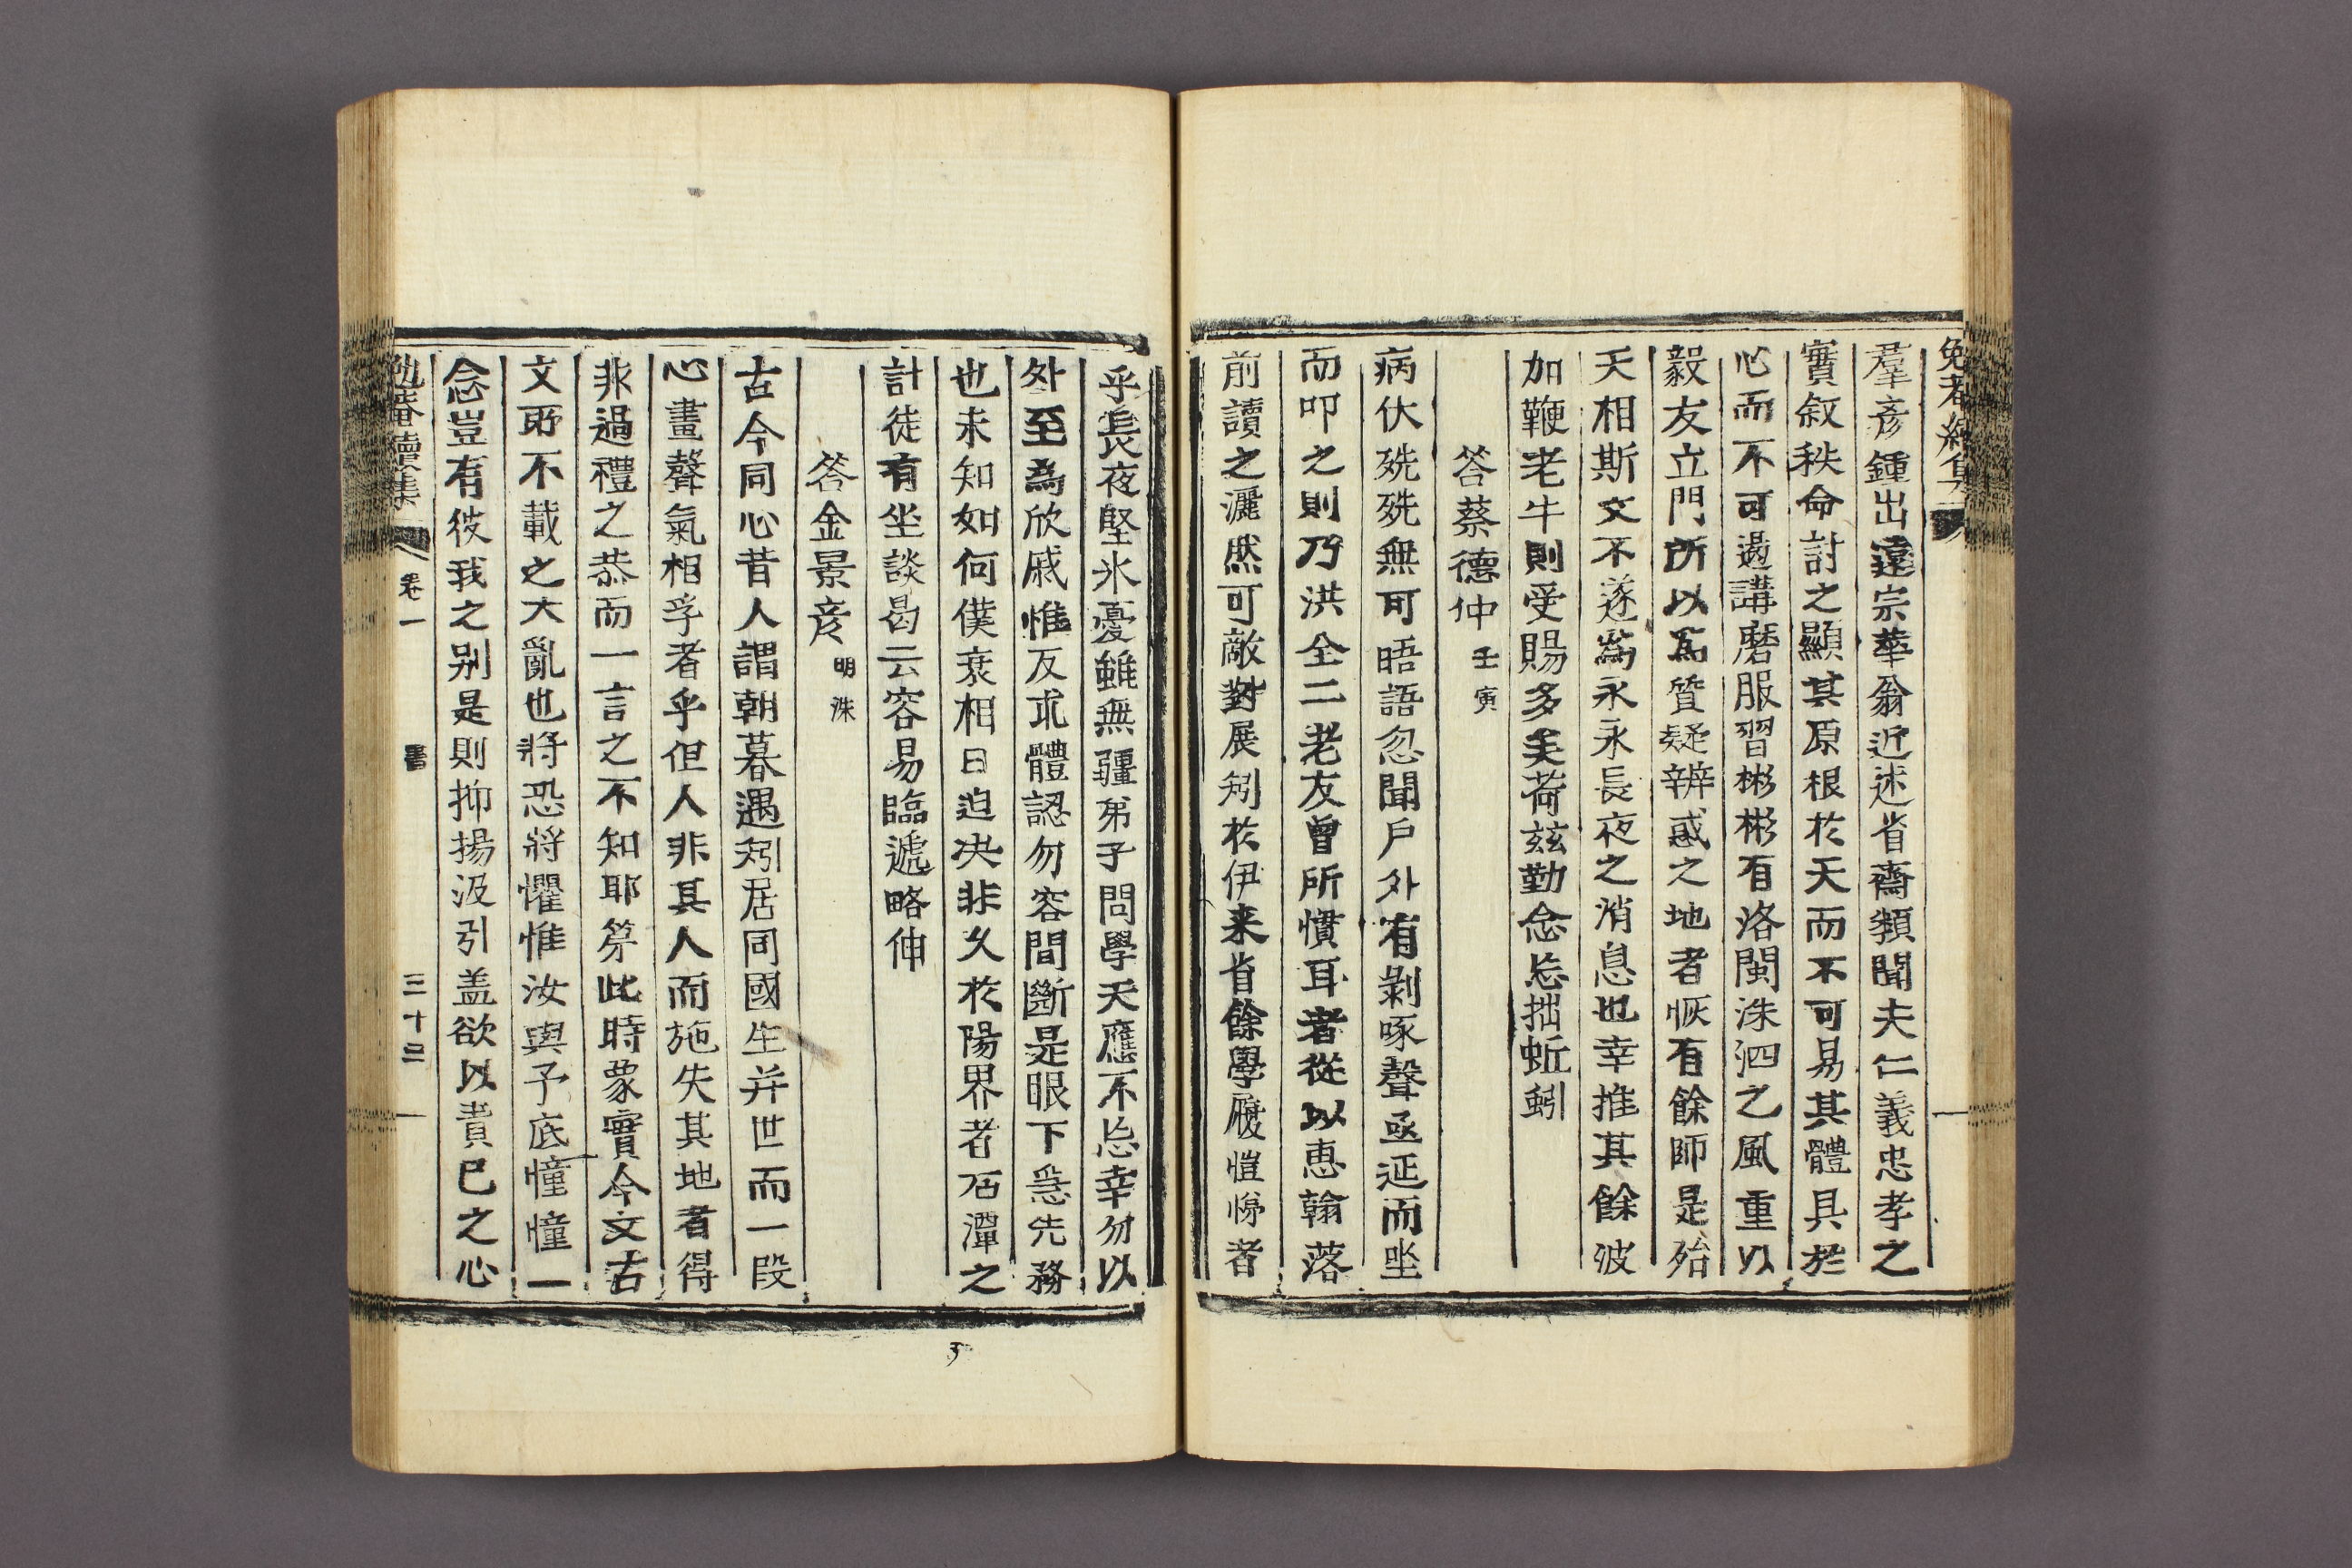 羣彥鍾出遠宗華翁近述省齋類聞夫仁義忠孝之
實叙秩命討之顯其原根於天而不可易其體具於
心而不可過講磨服習彬彬有洛閩洙泗之風重以
毅友立門所以爲質疑辨惑之地者恢有餘師是殆
天相斯文不遂爲永永長夜之消息也幸推其餘波
加鞭老牛則受賜多矣荷玆勤念忘拙蚯蚓
答蔡德仲 壬寅
病伏㱡㱡無可晤語忽聞戶外有剝啄聲亟延而坐
而叩之則乃洪全二老友曾所慣耳者從以惠翰落
前讀之灑然可敵對展矧於伊来省餘學履愷悌者
乎長夜堅氷憂雖無疆弟子問學天應不忘幸勿以
外至為欣戚惟反求體認勿容間斷是眼下急先務
也未知如何僕衰相日迫决非久於陽界者石潭之
計徒有坐談曷云容易臨遞略伸
答金景彥 明洙
古今同心昔人謂朝暮遇矧居同國生并世而一段
心畫聲氣相孚者乎但人非其人而施失其地者得
非過禮之恭而一言之不知耶第此時象實今文古
文所不載之大亂也將恐將懼惟汝與予底憧憧一
念豈有彼我之别是則抑揚汲引盖欲以責已之心
續集 卷一 書 三十三